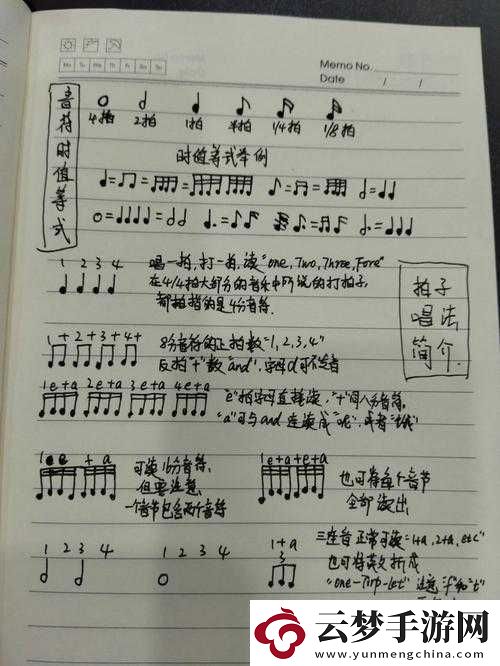 Memo No.
Mo Tu We Th Fr Sa Su
Date / /
音符时值等式
4拍 2拍 1拍 1/4拍 1/8拍
时值等式举例
1 2 3 4
唱一拍,打一拍,读"one, Two, Three, Fore"
在4/4拍大部分的音乐中所说的打拍子,
都拍指的是4分音符.
拍子唱法简介.
1 + 2 + 3 + 4 +
8分音符的正拍数"1, 2, 3, 4"
反拍"+"数"and", 字母d可不发音
1e+a 2e+a 3e+a 4e+a
"e"拍字母直接读, "+"同八分音符,
"a"可与and连读成
1 e + a
可读16分音符,
但要注意,
一个音节包含两个音符
1e+a+e+a
也可将每个音节
全部读出
1 2 3 4
1 2 3 4
1 + a
3
三连音正常可读"1+a, 2+a, etc"
也可将英文拆成
"one-Trip-let"
云梦手游网
www.yunmengchina.com